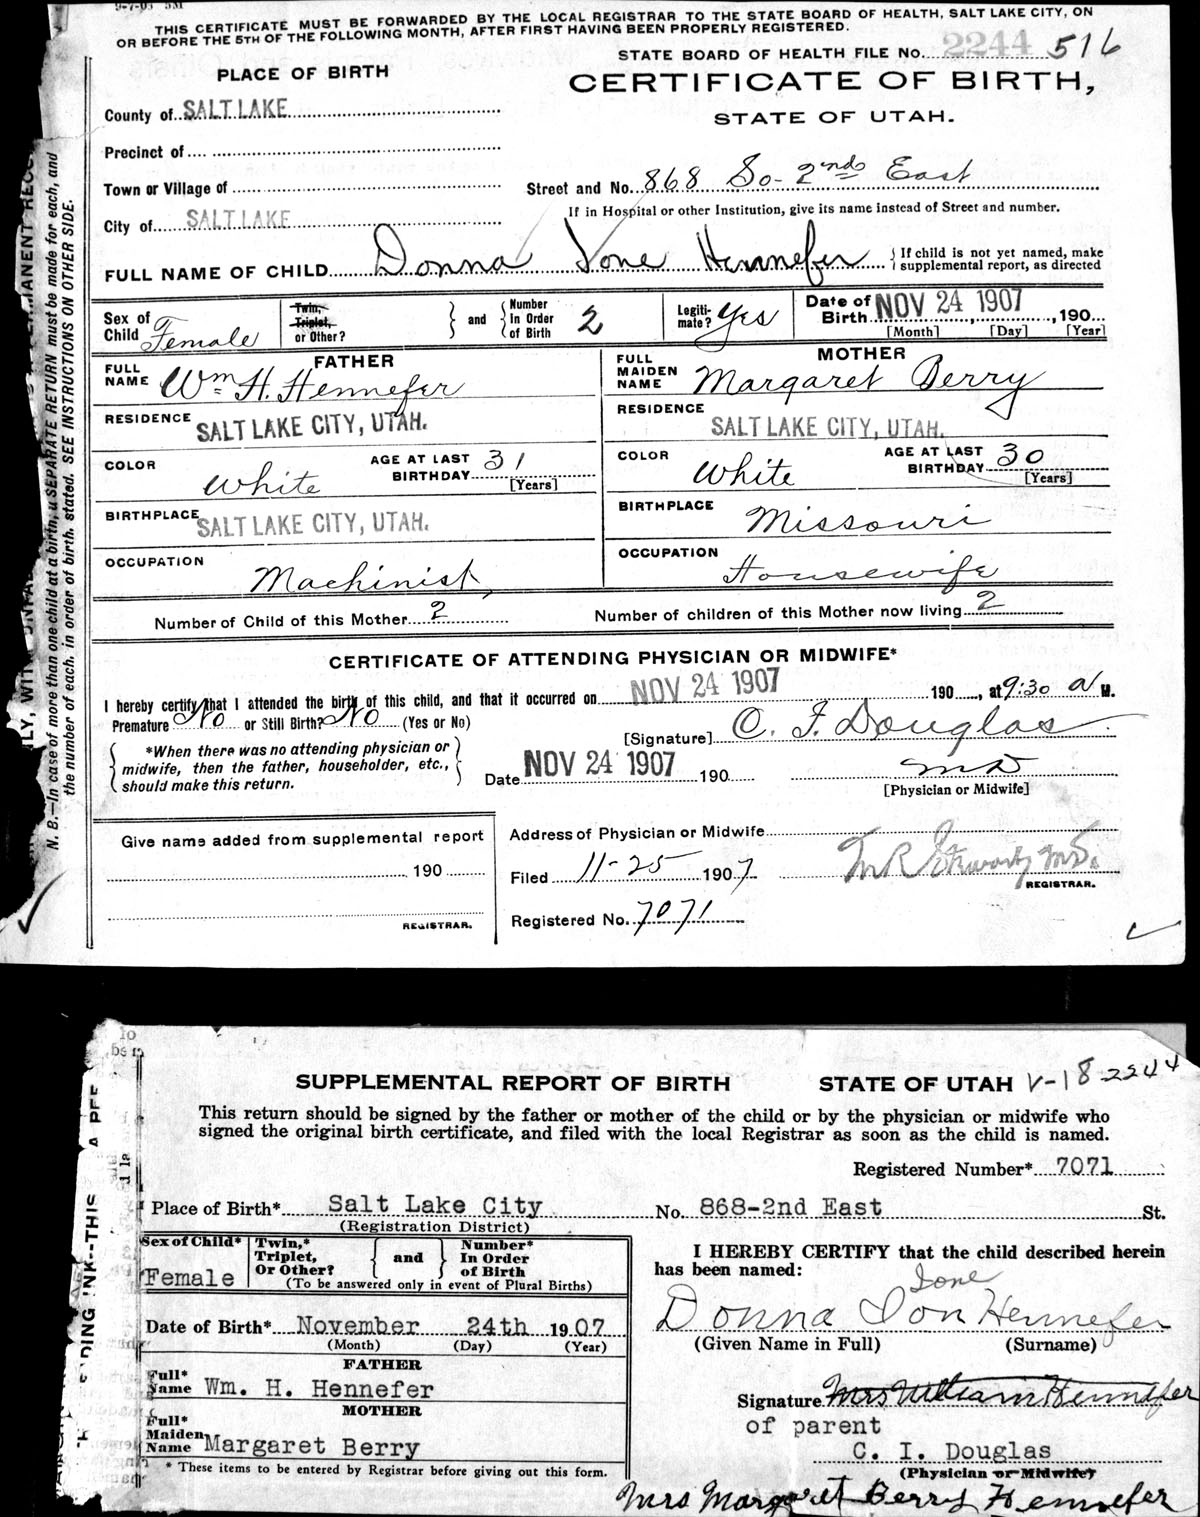 9-7-05 5M
THIS CERTIFICATE MUST BE FORWARDED BY THE LOCAL REGISTRAR TO THE STATE BOARD OF HEALTH, SALT LAKE CITY, ON
OR BEFORE THE 5TH OF THE FOLLOWING MONTH, AFTER FIRST HAVING BEEN PROPERLY REGISTERED.
STATE BOARD OF HEALTH FILE No. 2244 516
PLACE OF BIRTH
CERTIFICATE OF BIRTH,
STATE OF UTAH.
County of SALT LAKE
Precinct of
Town or Village of
Street and No. 868 So- 2nd East
If in Hospital or other Institution, give its name instead of Street and number.
City of SALT LAKE
FULL NAME OF CHILD Donna Ione Hennefer { If child is not yet named, make
supplemental report, as directed
Sex of Child Female
Twin, Triplet, or Other? } and { Number In Order of Birth 2
Legiti-mate? Yes
Date of Birth NOV 24 1907, 190
[Month] [Day] [Year]
FATHER
FULL NAME Wm H. Hennefer
RESIDENCE SALT LAKE CITY, UTAH.
COLOR White
AGE AT LAST BIRTHDAY 31 [Years]
BIRTHPLACE SALT LAKE CITY, UTAH.
OCCUPATION Machinist
MOTHER
FULL MAIDEN NAME Margaret Berry
RESIDENCE SALT LAKE CITY, UTAH.
COLOR White
AGE AT LAST BIRTHDAY 30 [Years]
BIRTHPLACE Missouri
OCCUPATION Housewife
Number of Child of this Mother 2 Number of children of this Mother now living 2
CERTIFICATE OF ATTENDING PHYSICIAN OR MIDWIFE*
I hereby certify that I attended the birth of this child, and that it occurred on NOV 24 1907 190, at 9:30 a M.
Premature No or Still Birth? No (Yes or No)
[Signature] C. I. Douglas
{ *When there was no attending physician or
midwife, then the father, householder, etc.,
should make this return. }
Date NOV 24 1907 190 MD
[Physician or Midwife]
Give name added from supplemental report
190
REGISTRAR.
Address of Physician or Midwife
Filed 11-25 1907
REGISTRAR.
Registered No. 7071
N. B.—In case of more than one child at a birth, a SEPARATE RETURN must be made for each, and
the number of each, in order of birth, stated. SEE INSTRUCTIONS ON OTHER SIDE.
SUPPLEMENTAL REPORT OF BIRTH STATE OF UTAH V-18-2244
This return should be signed by the father or mother of the child or by the physician or midwife who
signed the original birth certificate, and filed with the local Registrar as soon as the child is named.
Registered Number* 7071
Place of Birth* Salt Lake City No. 868-2nd East St.
(Registration District)
Sex of Child* Female
Twin,* Triplet, Or Other? } and { Number* In Order of Birth
(To be answered only in event of Plural Births)
Date of Birth* November 24th 1907
(Month) (Day) (Year)
FATHER
Full* Name Wm. H. Hennefer
MOTHER
Full* Maiden Name Margaret Berry
* These items to be entered by Registrar before giving out this form.
I HEREBY CERTIFY that the child described herein
has been named:
Ione
Donna Ion Hennefer
(Given Name in Full) (Surname)
Signature Mrs William Hennefer
of parent
C. I. Douglas
(Physician or Midwife)
Mrs Margaret Berry Hennefer